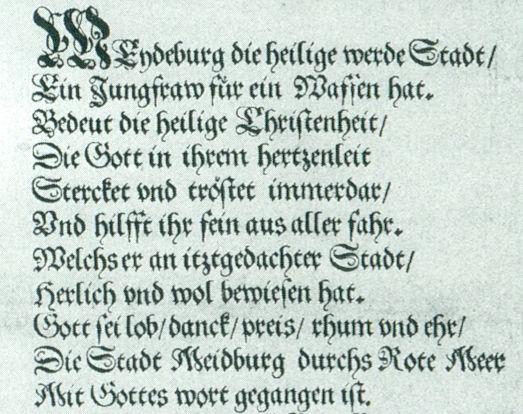 MEydeburg die heilige werde Stadt/
Ein Jungfraw für ein Waffen hat.
Bedeut die heilige Christenheit/
Die Gott in ihrem hertzenleit
Stercket vnd tröstet immerdar/
Vnd hilfft ihr fein aus aller fahr.
Welchs er an itztgedachter Stadt/
Herlich vnd wol bewiesen hat.
Gott sei lob/danck/preis/ rhum vnd ehr/
Die Stadt Meidburg durchs Rote Meer
Mit Gottes wort gegangen ist.